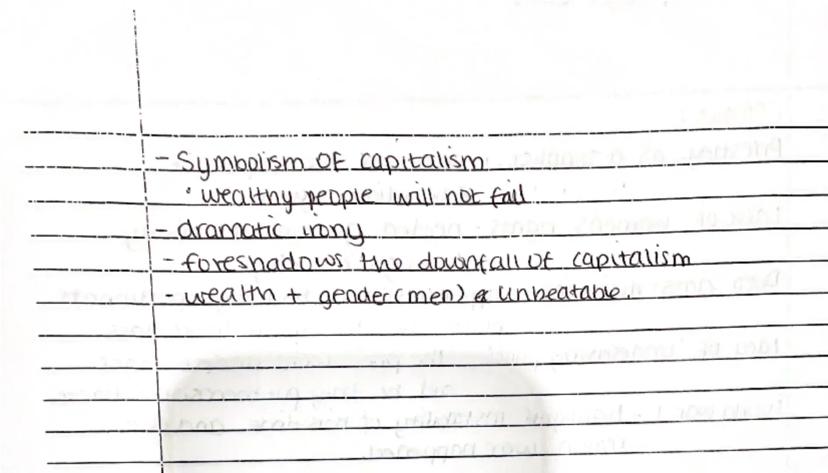 - Symbolism of capitalism
• wealthy people will not fail
- dramatic irony
- foreshadows the downfall of capitalism
- wealth + gender (men) & unbeatable.